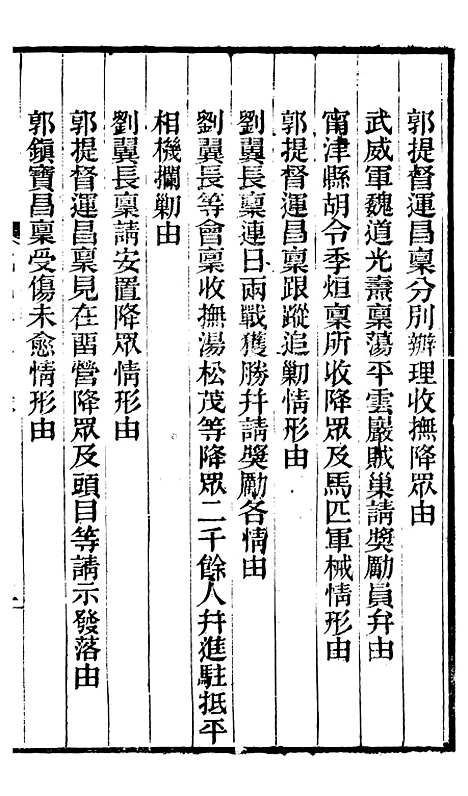 郭提督運昌稟分別辦理收撫降眾由
武威軍魏道光燾稟蕩平雲巖賊巢請奬勵員弁由
甯津縣胡令季烜稟所收降眾及馬匹軍械情形由
郭提督運昌稟跟蹤追勦情形由
劉翼長稟連日兩戰獲勝幷請奬勵各情由
劉翼長等會稟收撫湯松茂等降眾二千餘人幷進駐抵平
相機攔勦由
劉翼長稟請安置降眾情形由
郭提督運昌稟見在畱營降眾及頭目等請示發落由
郭鎭寶昌稟受傷未愈情形由